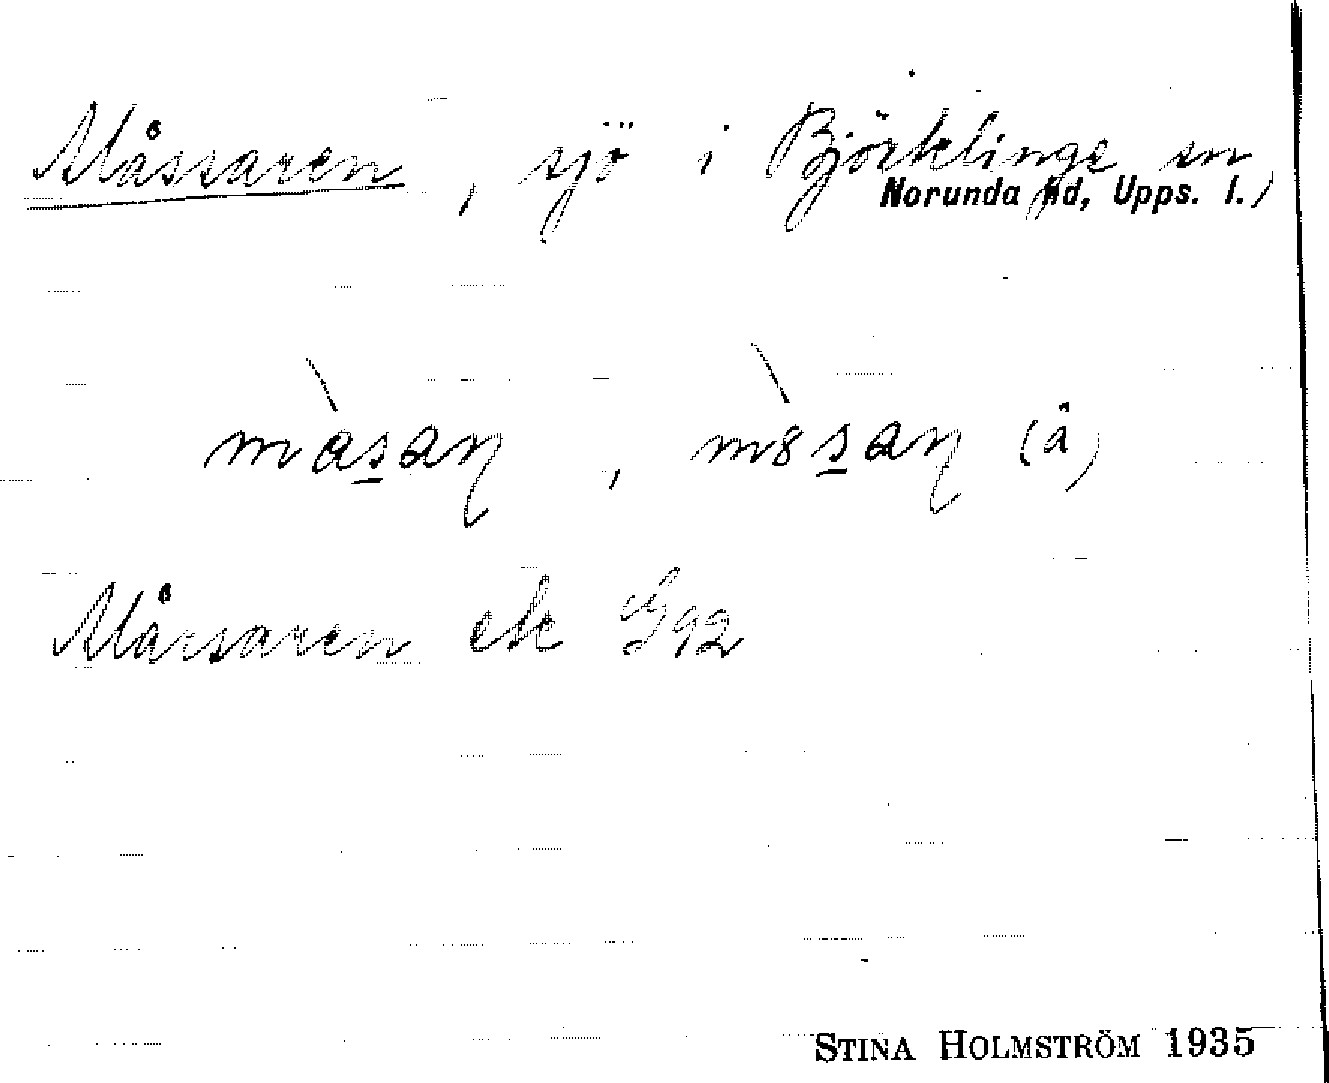 Måssaren, sjö i Björklinge sn,
Norunda hd, Upps. l.,
màsan, mòsan (å)
Mårsaren ek G92
STINA HOLMSTRÖM 1935